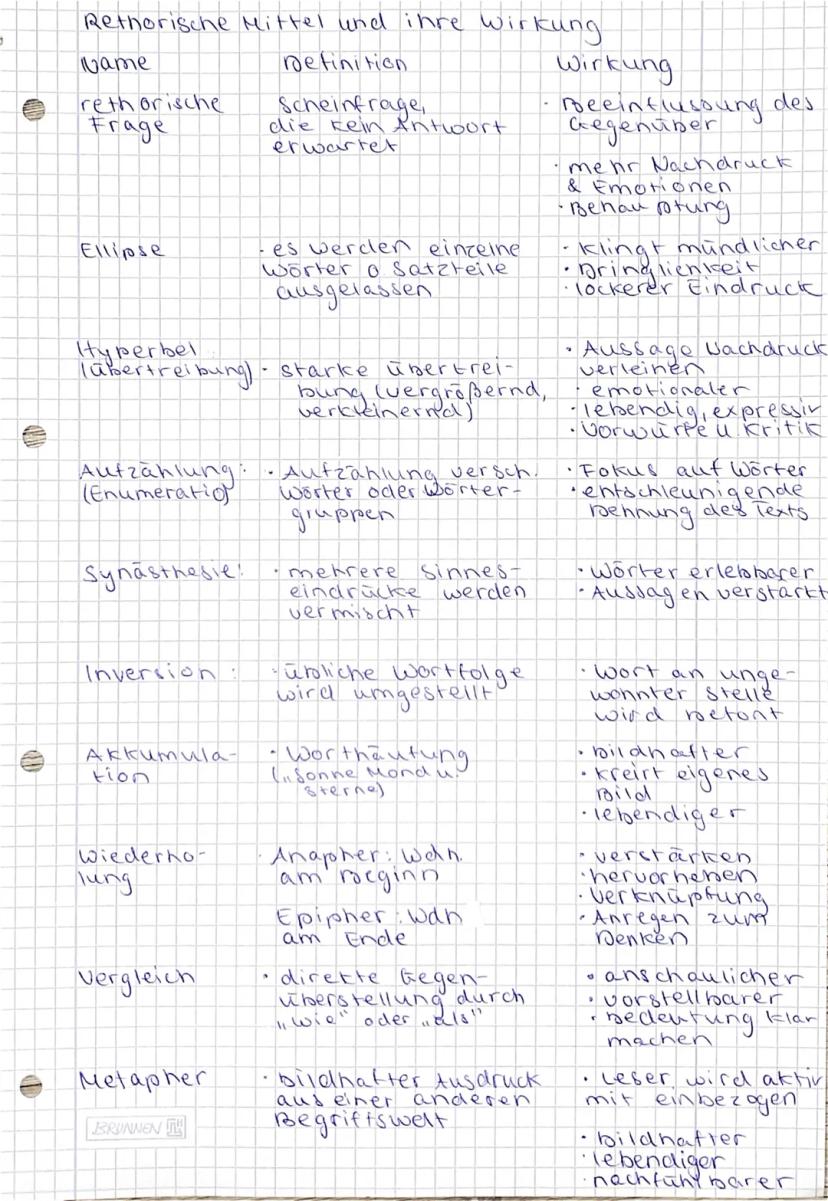 Rethorische Mittel und ihre Wirkung
Name Definition Wirkung
rethorische Scheinfrage, · Beeinflussung des
Frage die kein Antwort Gegenüber
erwartet
· mehr Nachdruck
& Emotionen
· Behauptung
Ellipse · es werden einzelne · klingt mündlicher
Wörter o Satzteile · Dringlichkeit
ausgelassen · lockerer Eindruck
Hyperbel · Aussage Nachdruck
(Übertreibung) · starke Übertrei- verleihen
bung (vergrößernd, · emotionaler
verkleinernd) · lebendig, expressiv
· Vorwürfe u. Kritik
Aufzählung: · Aufzählung versch. · Fokus auf Wörter
(Enumeratio) Wörter oder Wörter- · entschleunigende
gruppen Dehnung des Texts
Synästhesie: · mehrere Sinnes- · Wörter erlebbarer
eindrücke werden · Aussagen verstärkt
vermischt
Inversion: · übliche Wortfolge · Wort an unge-
wird umgestellt wohnter Stelle
wird betont
Akkumula- · Worthäufung · bildhafter
tion („Sonne Mond u. · kreirt eigenes
Sterne) Bild
· lebendiger
Wiederho- · Anapher: Wdh. · verstärken
lung am Beginn · hervorheben
· Verknüpfung
Epipher: Wdh · Anregen zum
am Ende Denken
Vergleich · direkte Gegen- · anschaulicher
überstellung durch · vorstellbarer
„wie" oder „als" · Bedeutung klar
machen
Metapher · bildhafter Ausdruck · Leser wird aktiv
aus einer anderen mit einbezogen
Begriffswelt
BRUNNEN
· bildhafter
· lebendiger
· nachfühlbarer